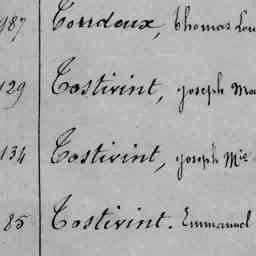 987 Tourdoux, Thomas Lou
129 Costivint, joseph Ma
134 Costivint, joseph Mie
85 Costivint. Emmanuel